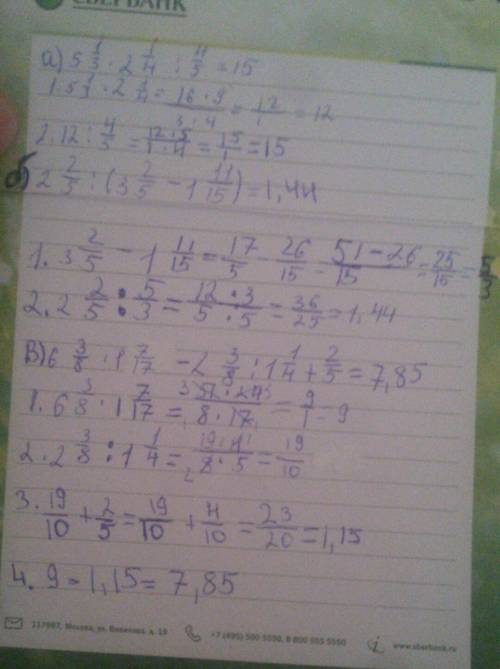 СБЕРБАНК
а) 5 1/3 · 2 1/4 : 4/5 = 15
1. 5 1/3 · 2 1/4 = 16·9/3·4 = 12/1 = 12
2. 12 : 4/5 = 12·5/1·4 = 15/1 = 15
б) 2 2/5 : (3 2/5 − 1 11/15) = 1,44
1. 3 2/5 − 1 11/15 = 17/5 − 26/15 = 51−26/15 = 25/15 = 5/3
2. 2 2/5 : 5/3 = 12·3/5·5 = 36/25 = 1,44
В) 6 3/8 · 1 7/17 − 2 3/8 : 1 1/4 + 2/5 = 7,85
1. 6 3/8 · 1 7/17 = 51·24/8·17 = 9/1 = 9
2. 2 3/8 : 1 1/4 = 19·4/8·5 = 19/10
3. 19/10 + 2/5 = 19/10 + 4/10 = 23/20 = 1,15
4. 9 − 1,15 = 7,85
117997, Москва, ул. Вавилова, д. 19 +7 (495) 500 5550, 8 800 555 5550 www.sberbank.ru